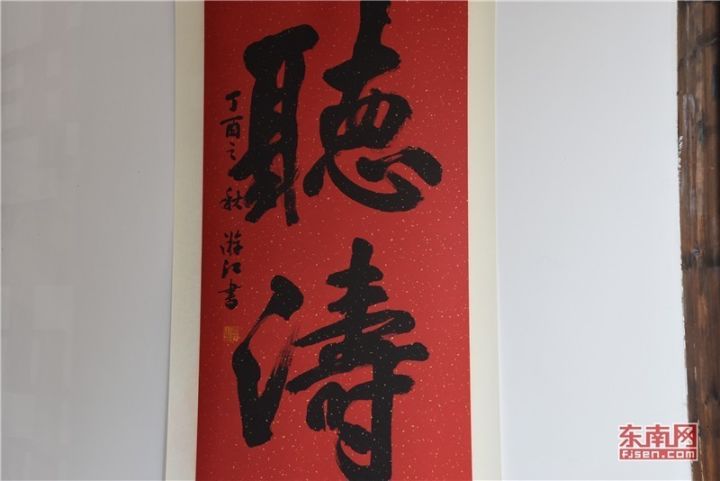 聽濤
丁酉之秋 游江書
东南网
Fjsen.com